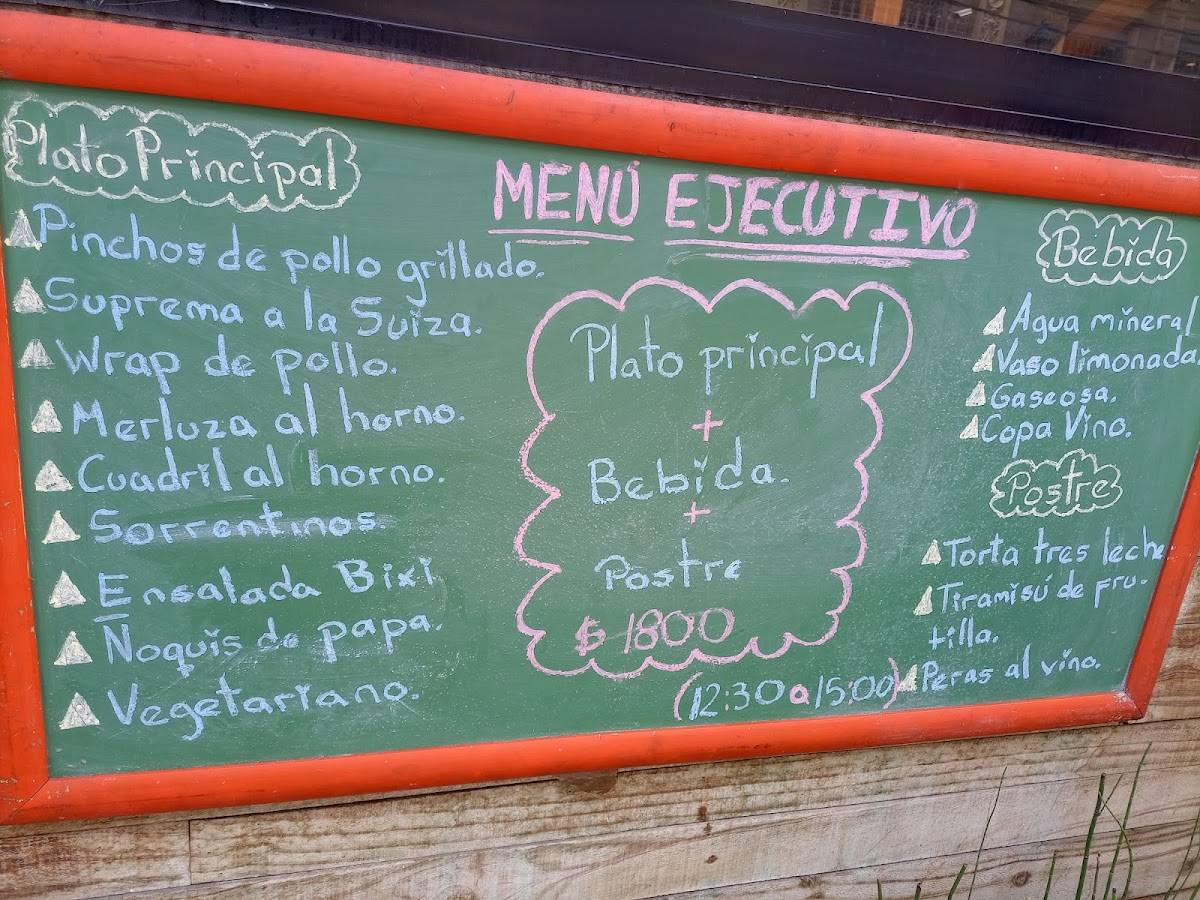 MENÚ EJECUTIVO
Plato Principal
Pinchos de pollo grillado.
Suprema a la Suiza.
Wrap de pollo.
Merluza al horno.
Cuadril al horno.
Sorrentinos
Ensalada Bixi
Ñoquis de papa.
Vegetariano.
Plato principal
+
Bebida.
+
Postre
$ 1800
(12:30 a 15:00)
Bebida
Agua mineral
Vaso limonada
Gaseosa.
Copa Vino.
Postre
Torta tres leche
Tiramisú de fru-
tilla.
Peras al vino.